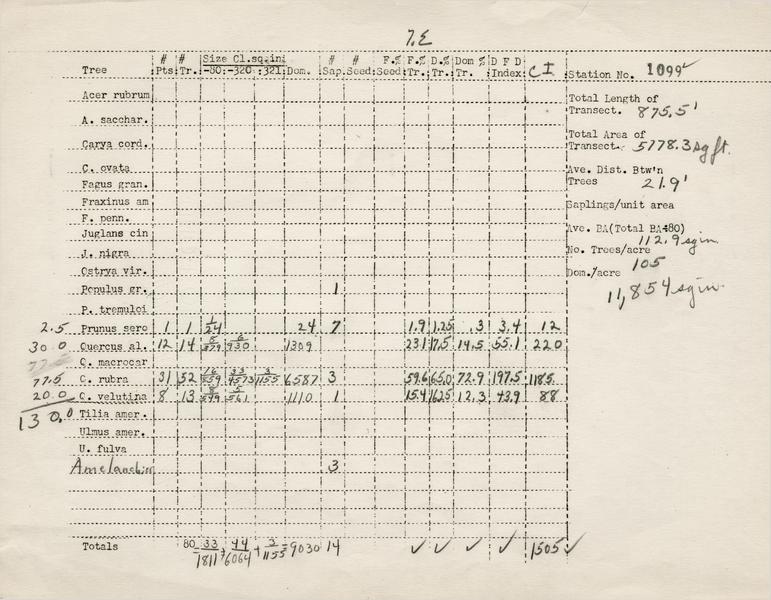 7.E
# # Size Cl.sq.in # # F.% F.% D.% Dom % D F D
Tree Pts. Tr. -80 -320 :321 Dom. Sap. Seed. Seed Tr. Tr. Tr. Index CI Station No. 1099
Acer rubrum
A. sacchar.
Carya cord.
C. ovata
Fagus gran.
Fraxinus am
F. penn.
Juglans cin
J. nigra
Ostrya vir.
Populus gr. 1
P. tremuloi
2.5 Prunus sero 1 1 1/24 24 7 1.9 1.25 .3 3.4 12
30.0 Quercus al. 12 14 8/379 6/930 1309 23.1 17.5 14.5 55.1 220
Q. macrocar
77.5 Q. rubra 31 52 16/859 33/4573 3/1155 6587 3 59.6 65.0 72.9 197.5 1185
20.0 Q. velutina 8 13 8/549 5/561 1110 1 15.4 16.25 12.3 43.9 88
130.0 Tilia amer.
Ulmus amer.
U. fulva
Amelanchier 3
Totals 80 = 33/1811 + 44/6064 + 3/1155 = 9030 14 ✓ ✓ ✓ ✓ 1505 ✓
Total Length of
Transect. 875.5'
Total Area of
Transect. 5778.3 sq ft.
Ave. Dist. Btw'n
Trees 21.9'
Saplings/unit area
Ave. BA(Total BA480)
112.9 sq in.
No. Trees/acre
105
Dom./acre
11,854 sq in.